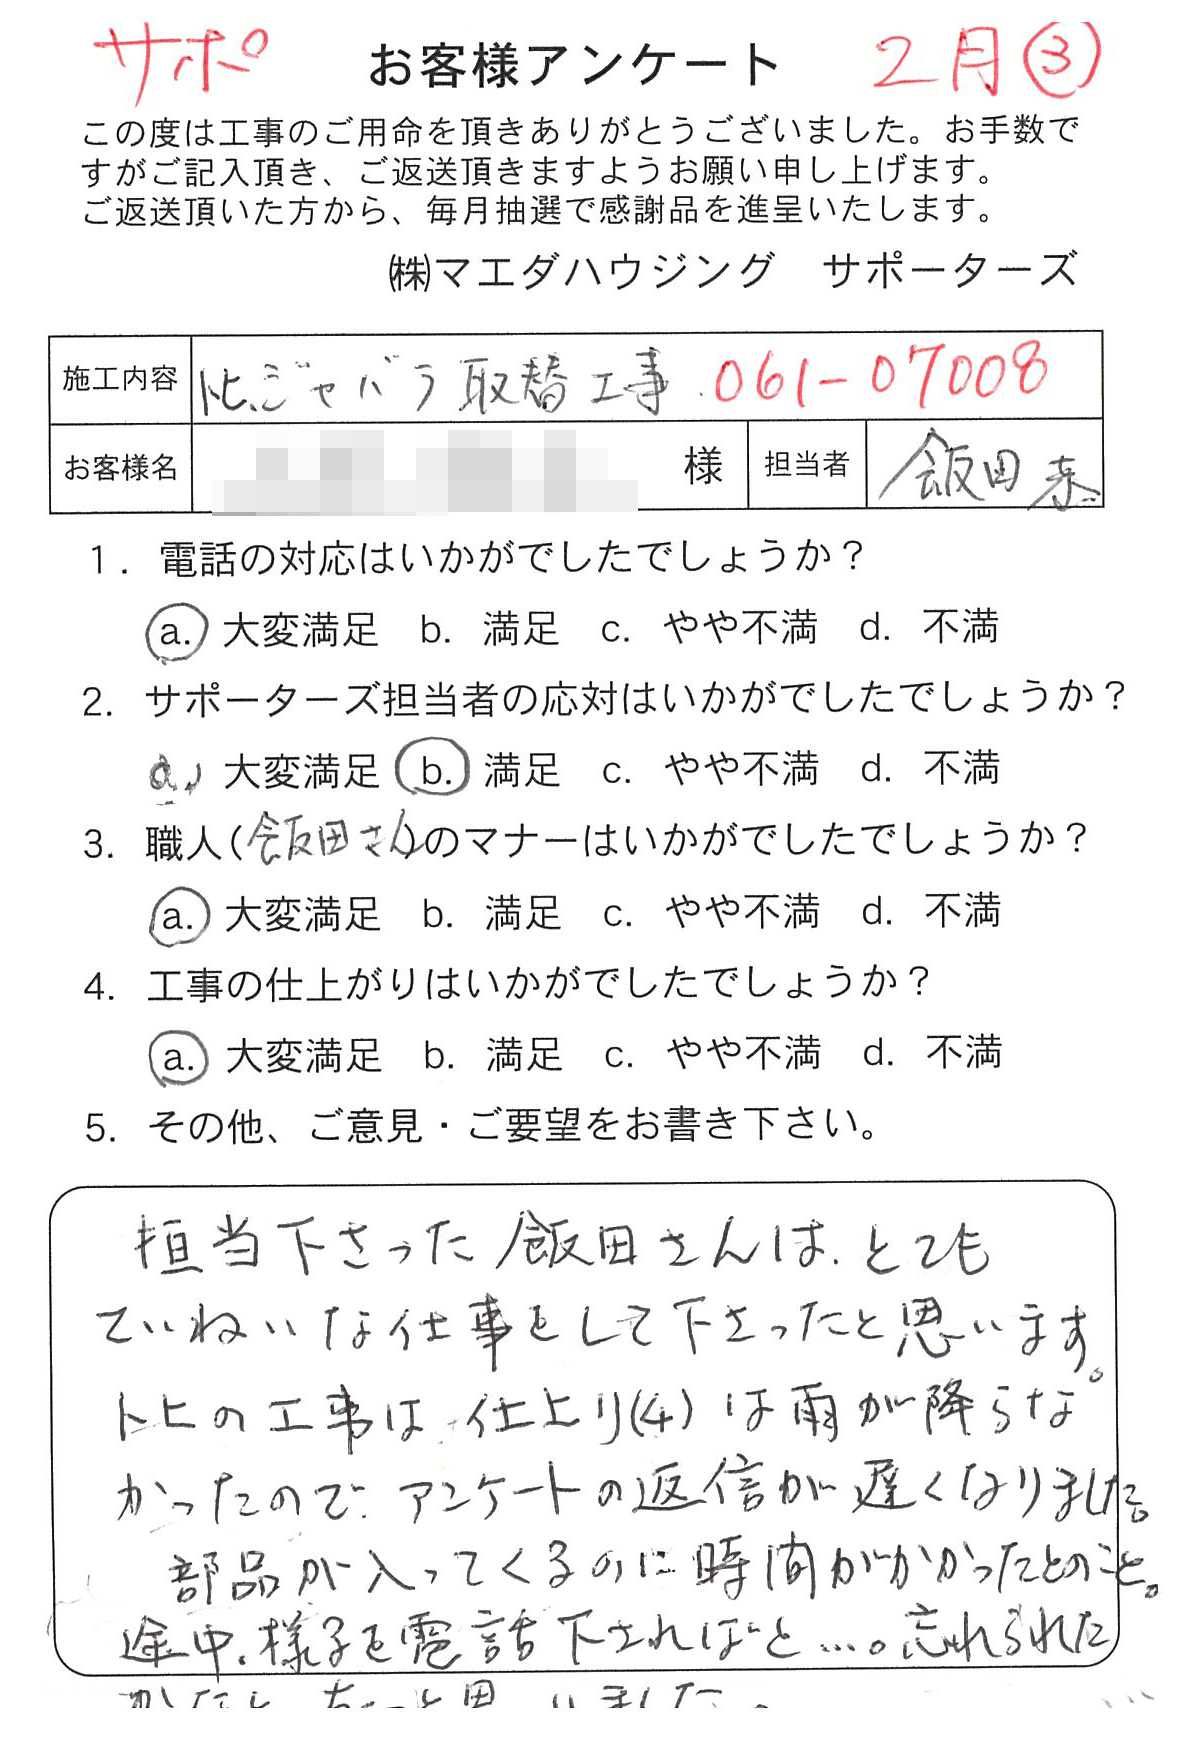 サポ お客様アンケート 2月③
この度は工事のご用命を頂きありがとうございました。お手数で
すがご記入頂き、ご返送頂きますようお願い申し上げます。
ご返送頂いた方から、毎月抽選で感謝品を進呈いたします。
㈱マエダハウジング サポーターズ
施工内容 トヒ、ジャバラ取替工事 061-07008
お客様名 様 担当者 飯田 泰
1. 電話の対応はいかがでしたでしょうか?
a. 大変満足 b. 満足 c. やや不満 d. 不満
2. サポーターズ担当者の応対はいかがでしたでしょうか?
a. 大変満足 b. 満足 c. やや不満 d. 不満
3. 職人(飯田さん)のマナーはいかがでしたでしょうか?
a. 大変満足 b. 満足 c. やや不満 d. 不満
4. 工事の仕上がりはいかがでしたでしょうか?
a. 大変満足 b. 満足 c. やや不満 d. 不満
5. その他、ご意見・ご要望をお書き下さい。
担当下さった飯田さんは、とても
ていねいな仕事をして下さったと思います。
トヒの工事は、仕上り(4)は雨が降らな
かったので、アンケートの返信が遅くなりました。
部品が入ってくるのに時間がかかったとのこと。
途中、様子を電話下さればと…。忘れられた
かなと、ちょっと思いました。